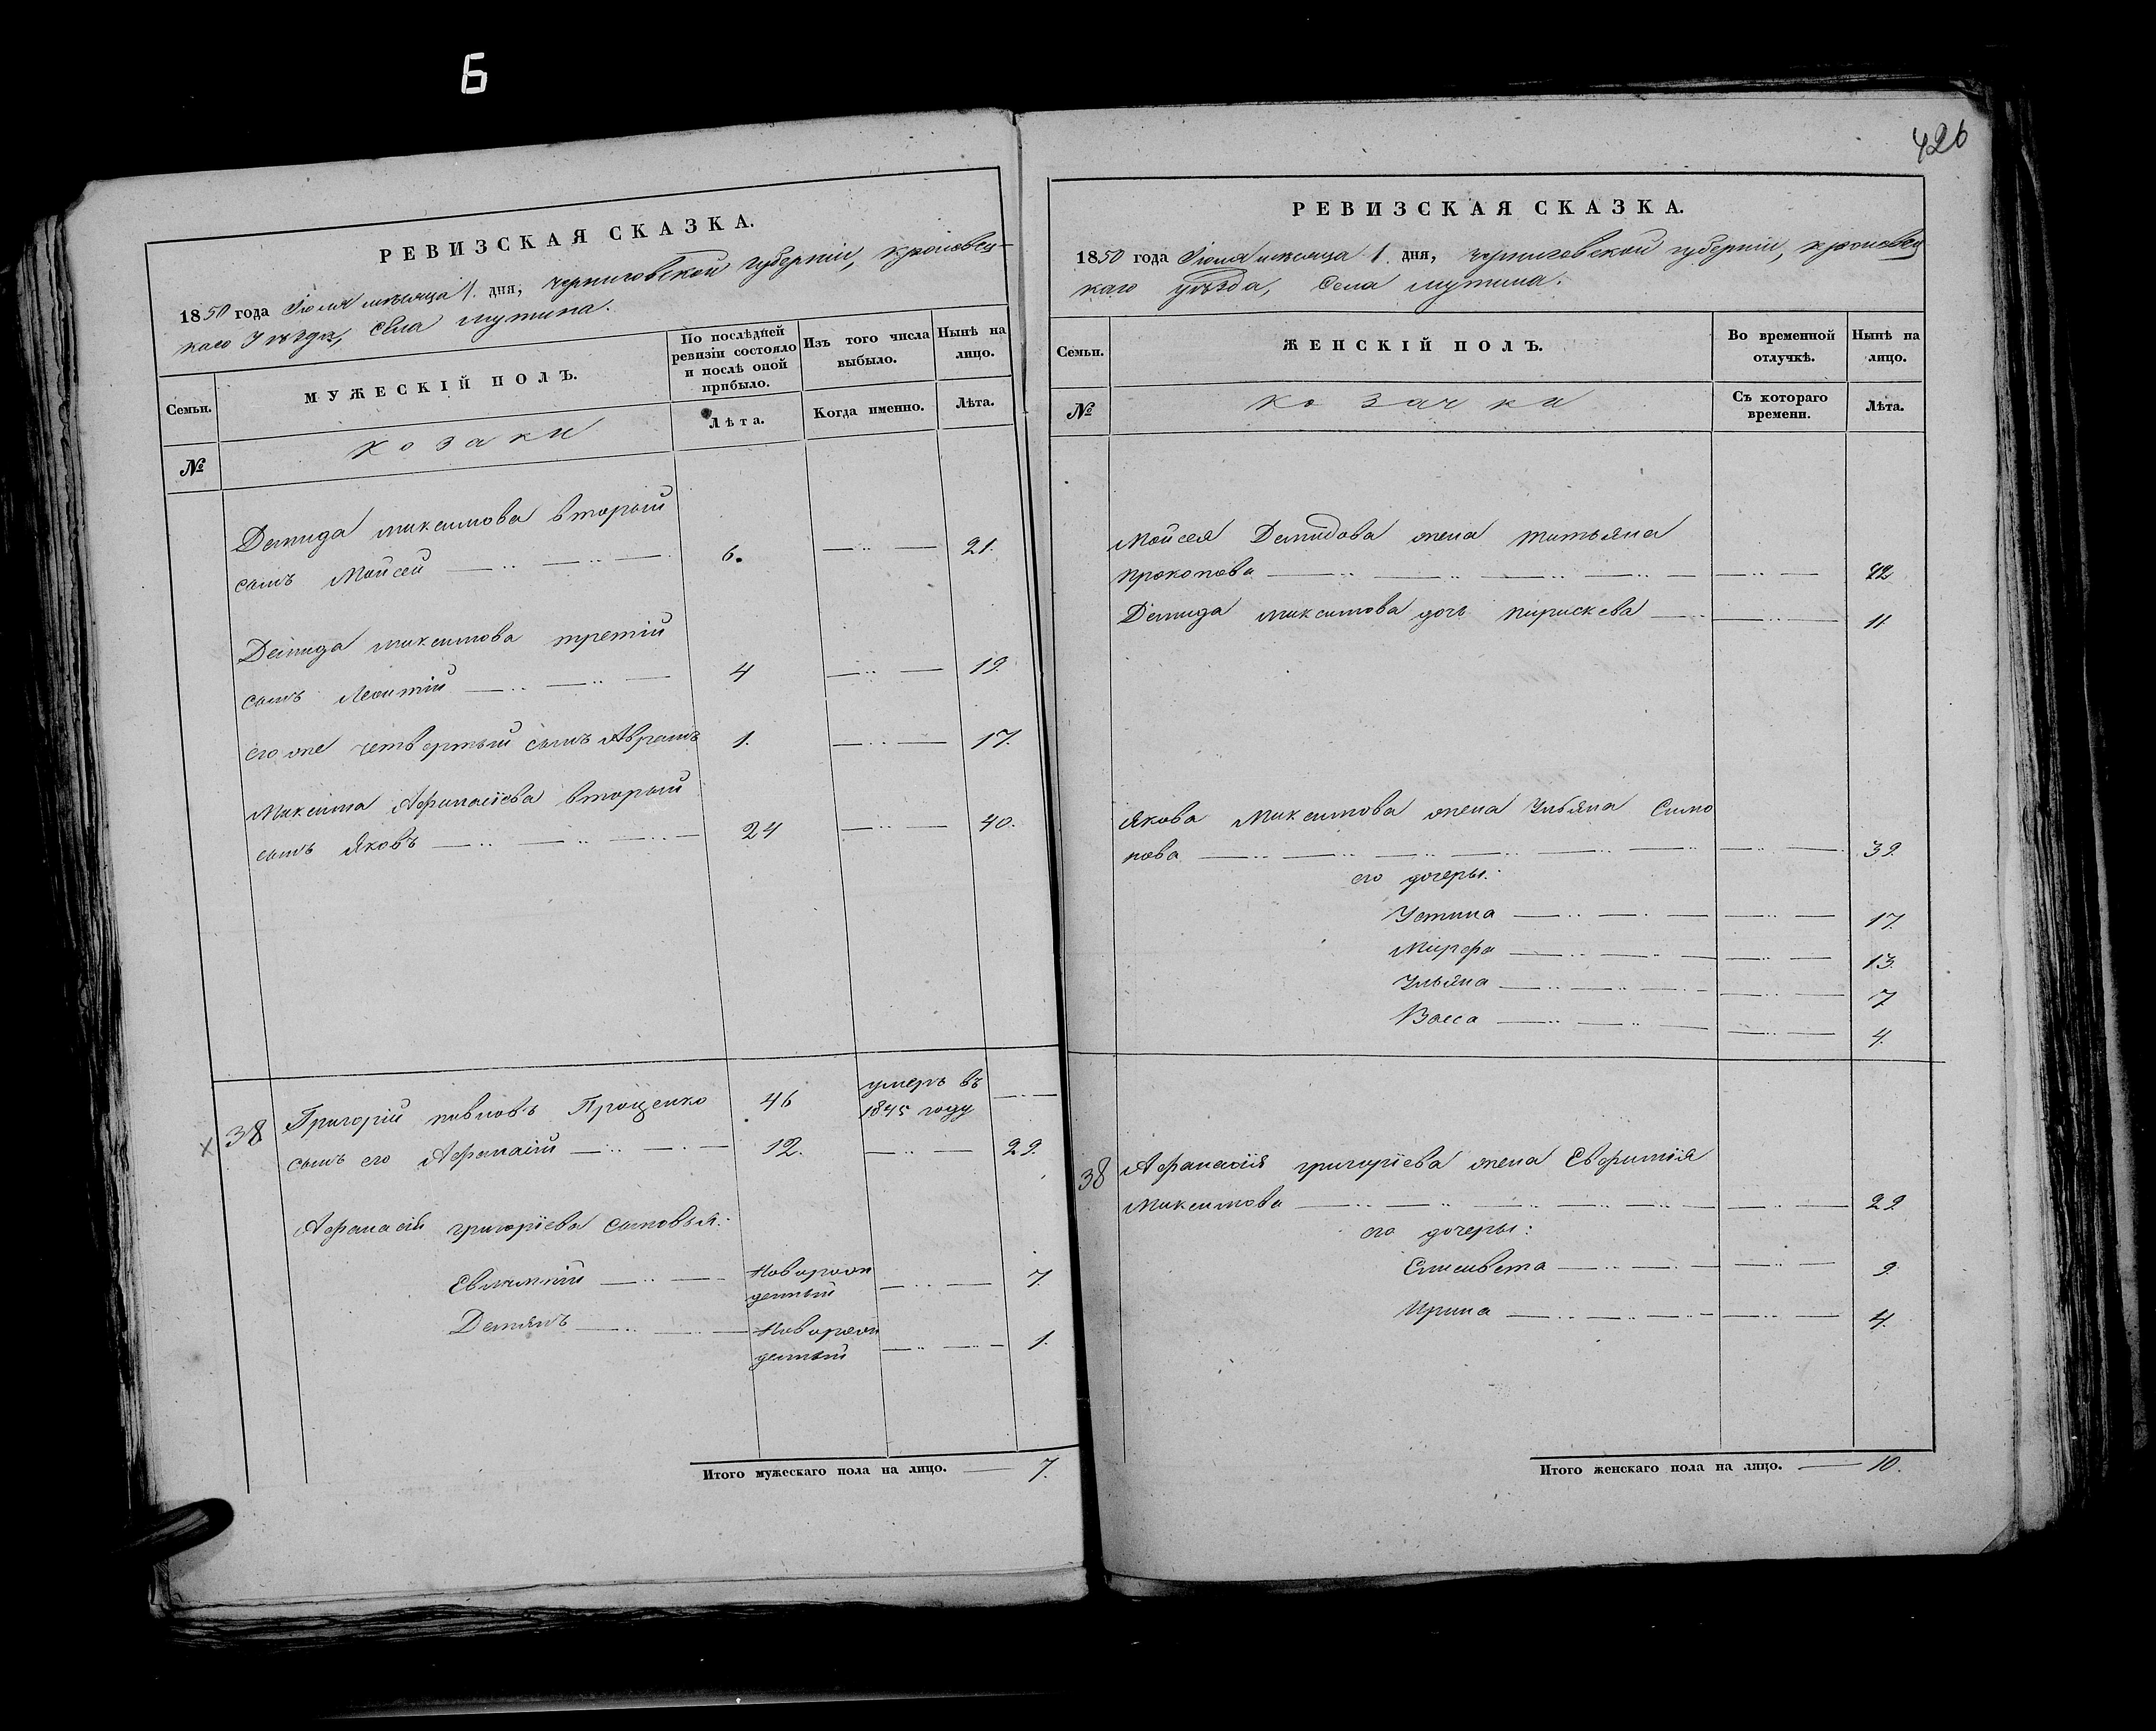 Б
РЕВИЗСКАЯ СКАЗКА.
1850 года Июля месяца 1. дня, черниговской губерніи, кролевец-
каго Уѣзда, Села мутина.
Семьи.
МУЖЕСКІЙ ПОЛЪ.
По послѣдней ревизіи состояло и послѣ оной прибыло.
Изъ того числа выбыло.
Нынѣ на лицо.
№
козаки
Лѣта.
Когда именно.
Лѣта.
Демида максимова вторый
сынъ Мойсей 6. 21.
Демида максимова третій
сынъ Леонтій 4 19.
его же четвертый сынъ Аврамъ 1. 17.
Максима Афанасіева вторый
сынъ Яковъ 24 40.
38 Григорій павловъ Прощенко 46 умеръ въ
1845 году
сынъ его Афанасій 12. 29.
Афанасія григоріева сыновья:
Евлампій Новорож
денный 7.
Демянъ Новорож
денный 1.
Итого мужескаго пола на лицо. 7.
426
РЕВИЗСКАЯ СКАЗКА.
1850 года Июля месяца 1. дня, черниговской губерніи, кролевец
каго уѣзда, Села мутина.
Семьи.
ЖЕНСКІЙ ПОЛЪ.
Во временной отлучкѣ.
Нынѣ на лицо.
№
козачки
Съ котораго времени.
Лѣта.
Мойсея Демидова жена татьяна
прокопова 22
Демида максимова дочь параскева 11
Якова Максимова жена Ульяна Симо
нова 39.
его дочеры:
Устина 17.
Марфа 13.
Ульяна 7
Васса 4.
38 Афанасія григоріева жена Евфимія
Максимова 29
его дочеры:
Елисавета 9.
Ирина 4.
Итого женскаго пола на лицо. 10.